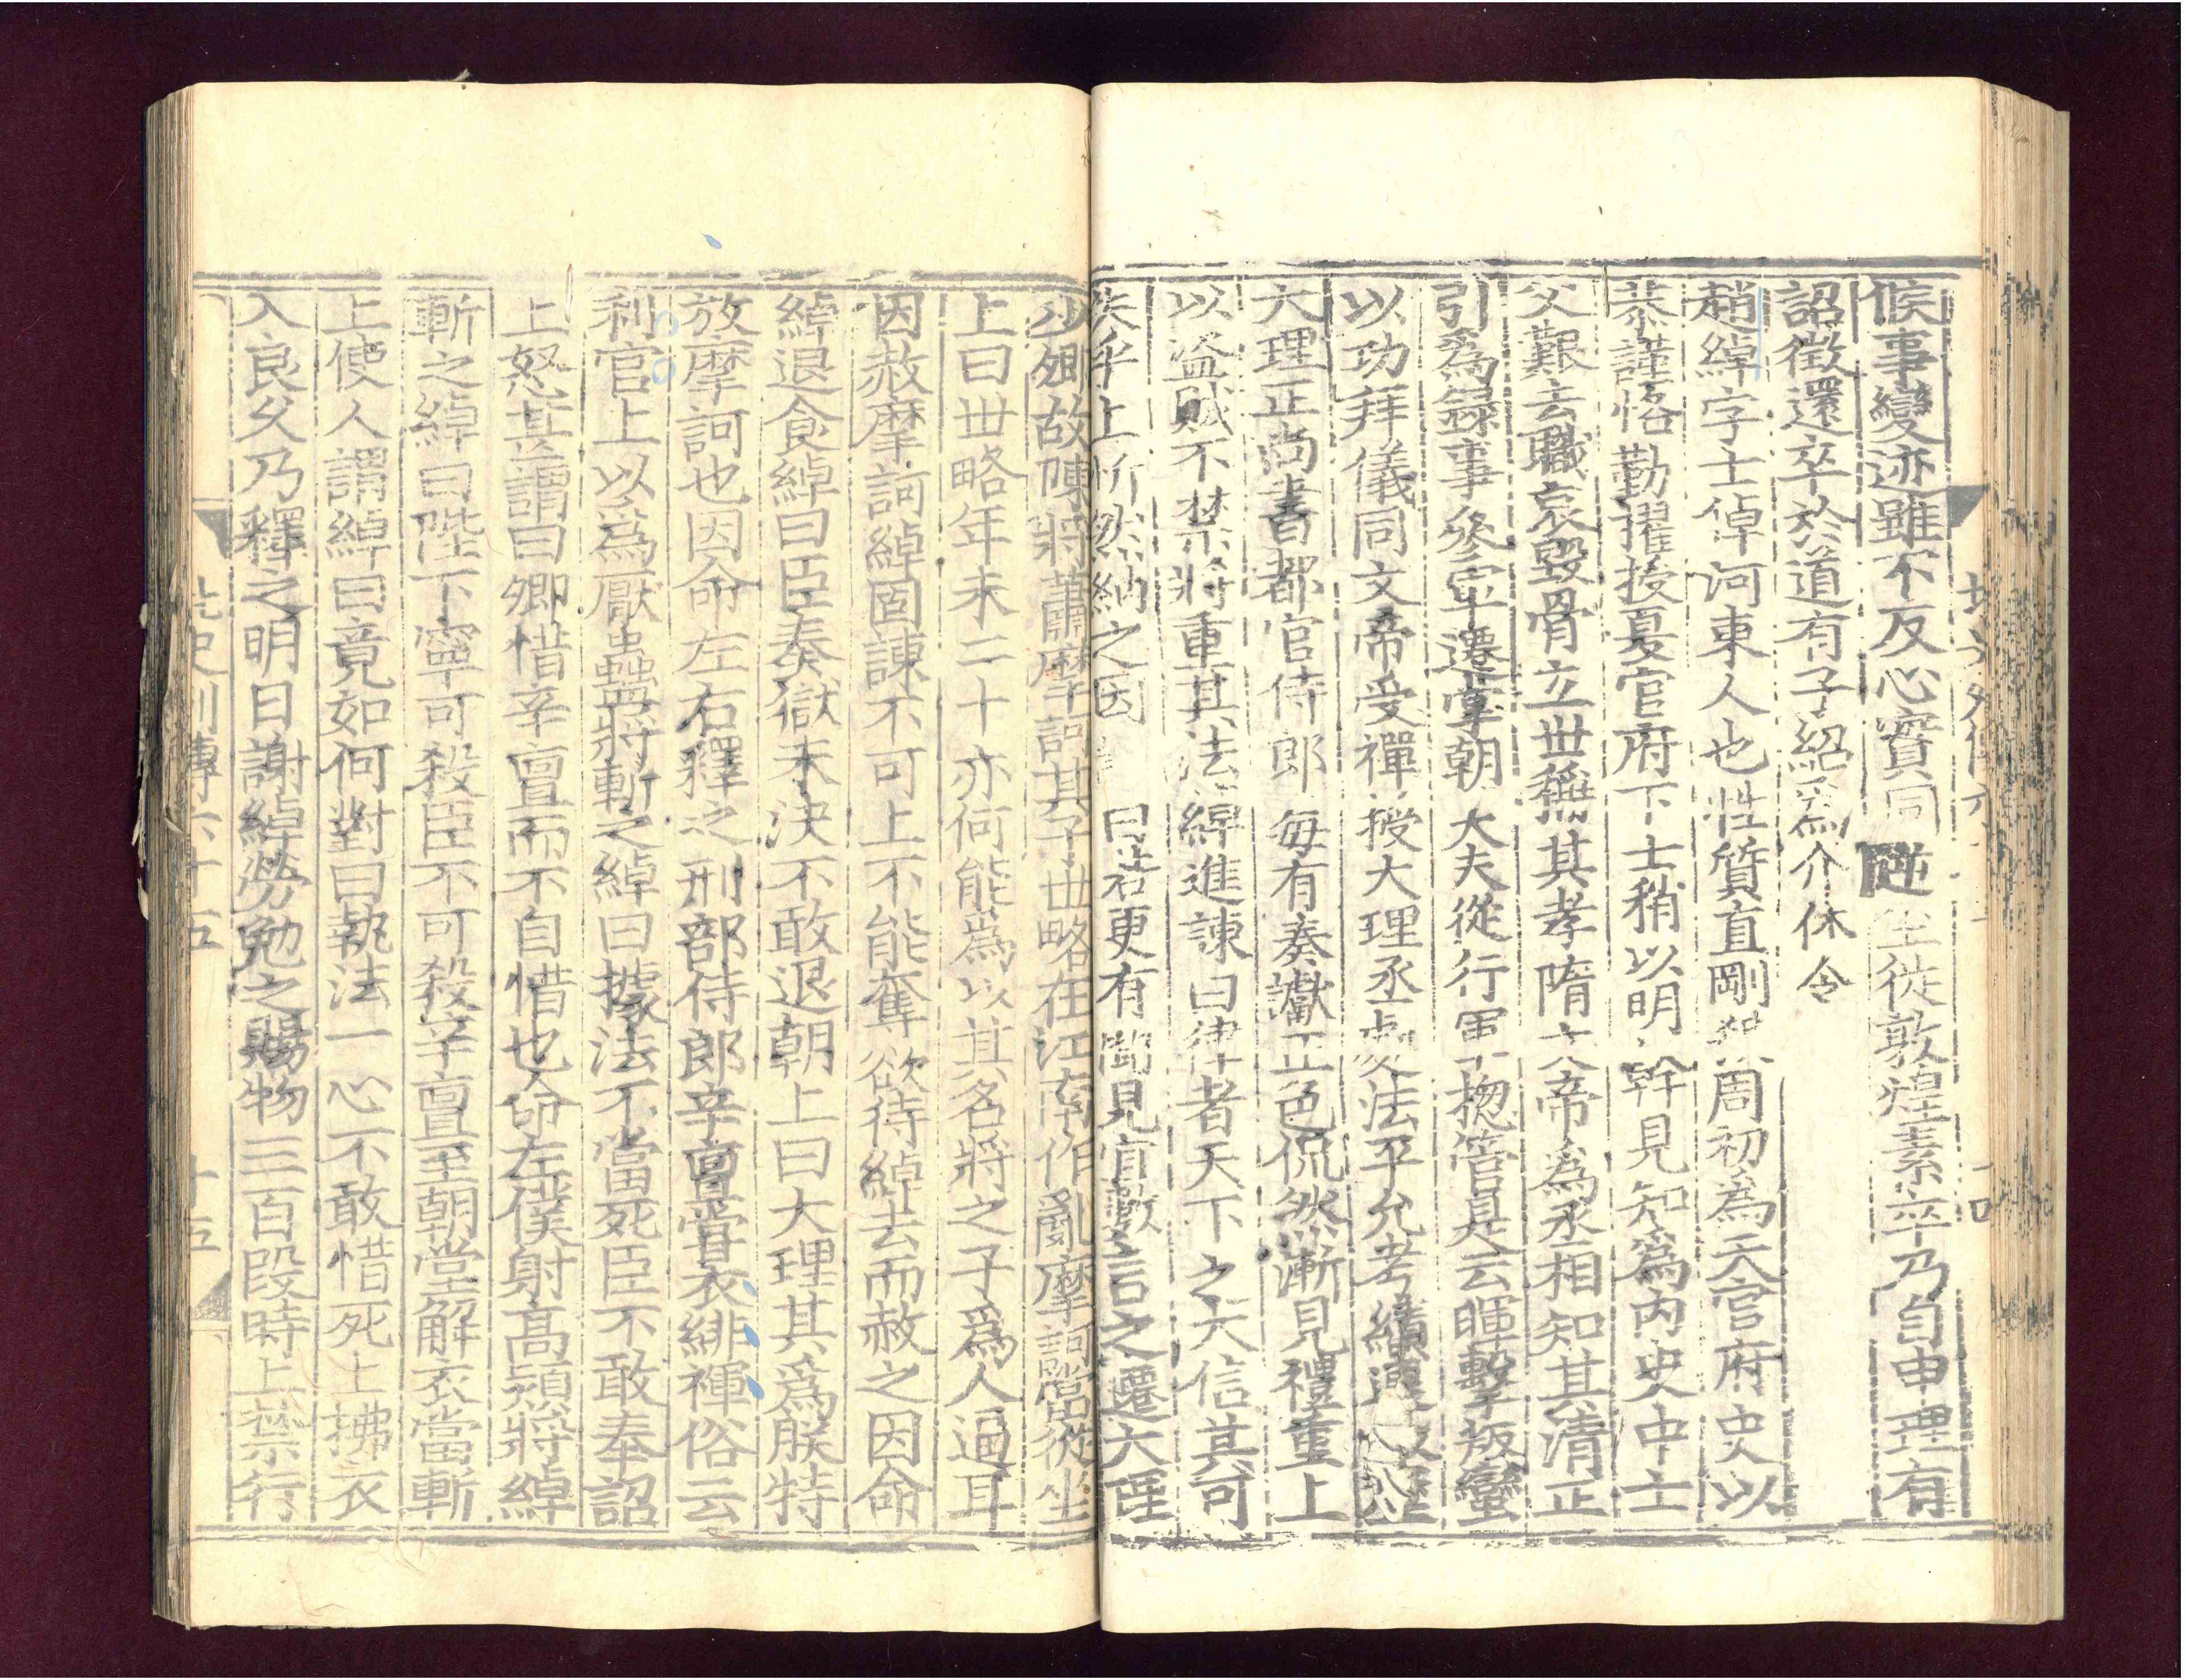 候事變迹雖不反心實同逆坐徙敦煌素卒乃自申理有
詔徵還卒於道有子紹爲介休令
趙綽字士倬河東人也性質直剛周初為天官府史以
恭謹恪勤擢授夏官府下士稍以明幹見知爲內史中士
父艱去職哀毀骨立世稱其孝隋文帝為丞相知其清正
引爲錄事參軍遷掌朝大夫從行軍揔管是云暉擊叛蠻
以功拜儀同文帝受禪授大理丞處法平允考績連
大理正尚書都官侍郎每有奏讞正色侃然漸見禮重上
以盜賊不禁將重其法綽進諫曰律者天下之大信其可
失乎上忻然納之因曰若更有聞見宜數言之遷大理
少卿故陳將蕭摩訶其子世略在江南作亂摩訶當從坐
上曰世略年未二十亦何能爲以其名將之子爲人逼耳
因赦摩訶綽固諫不可上不能奪欲待綽去而赦之因命
綽退食綽曰臣奏獄未決不敢退朝上曰大理其爲朕特
放摩訶也因命左右釋之刑部侍郎辛亶嘗衣緋褌俗云
利官上以爲厭蠱將斬之綽曰據法不當死臣不敢奉詔
上怒甚謂曰卿惜辛亶而不自惜也命左僕射高熲將綽
斬之綽曰陛下寧可殺臣不可殺辛亶至朝堂解衣當斬
上使人謂綽曰竟如何對曰執法一心不敢惜死上拂衣
入良久乃釋之明日謝綽勞勉之賜物三百段時上禁行
北史列傳六十五
十五